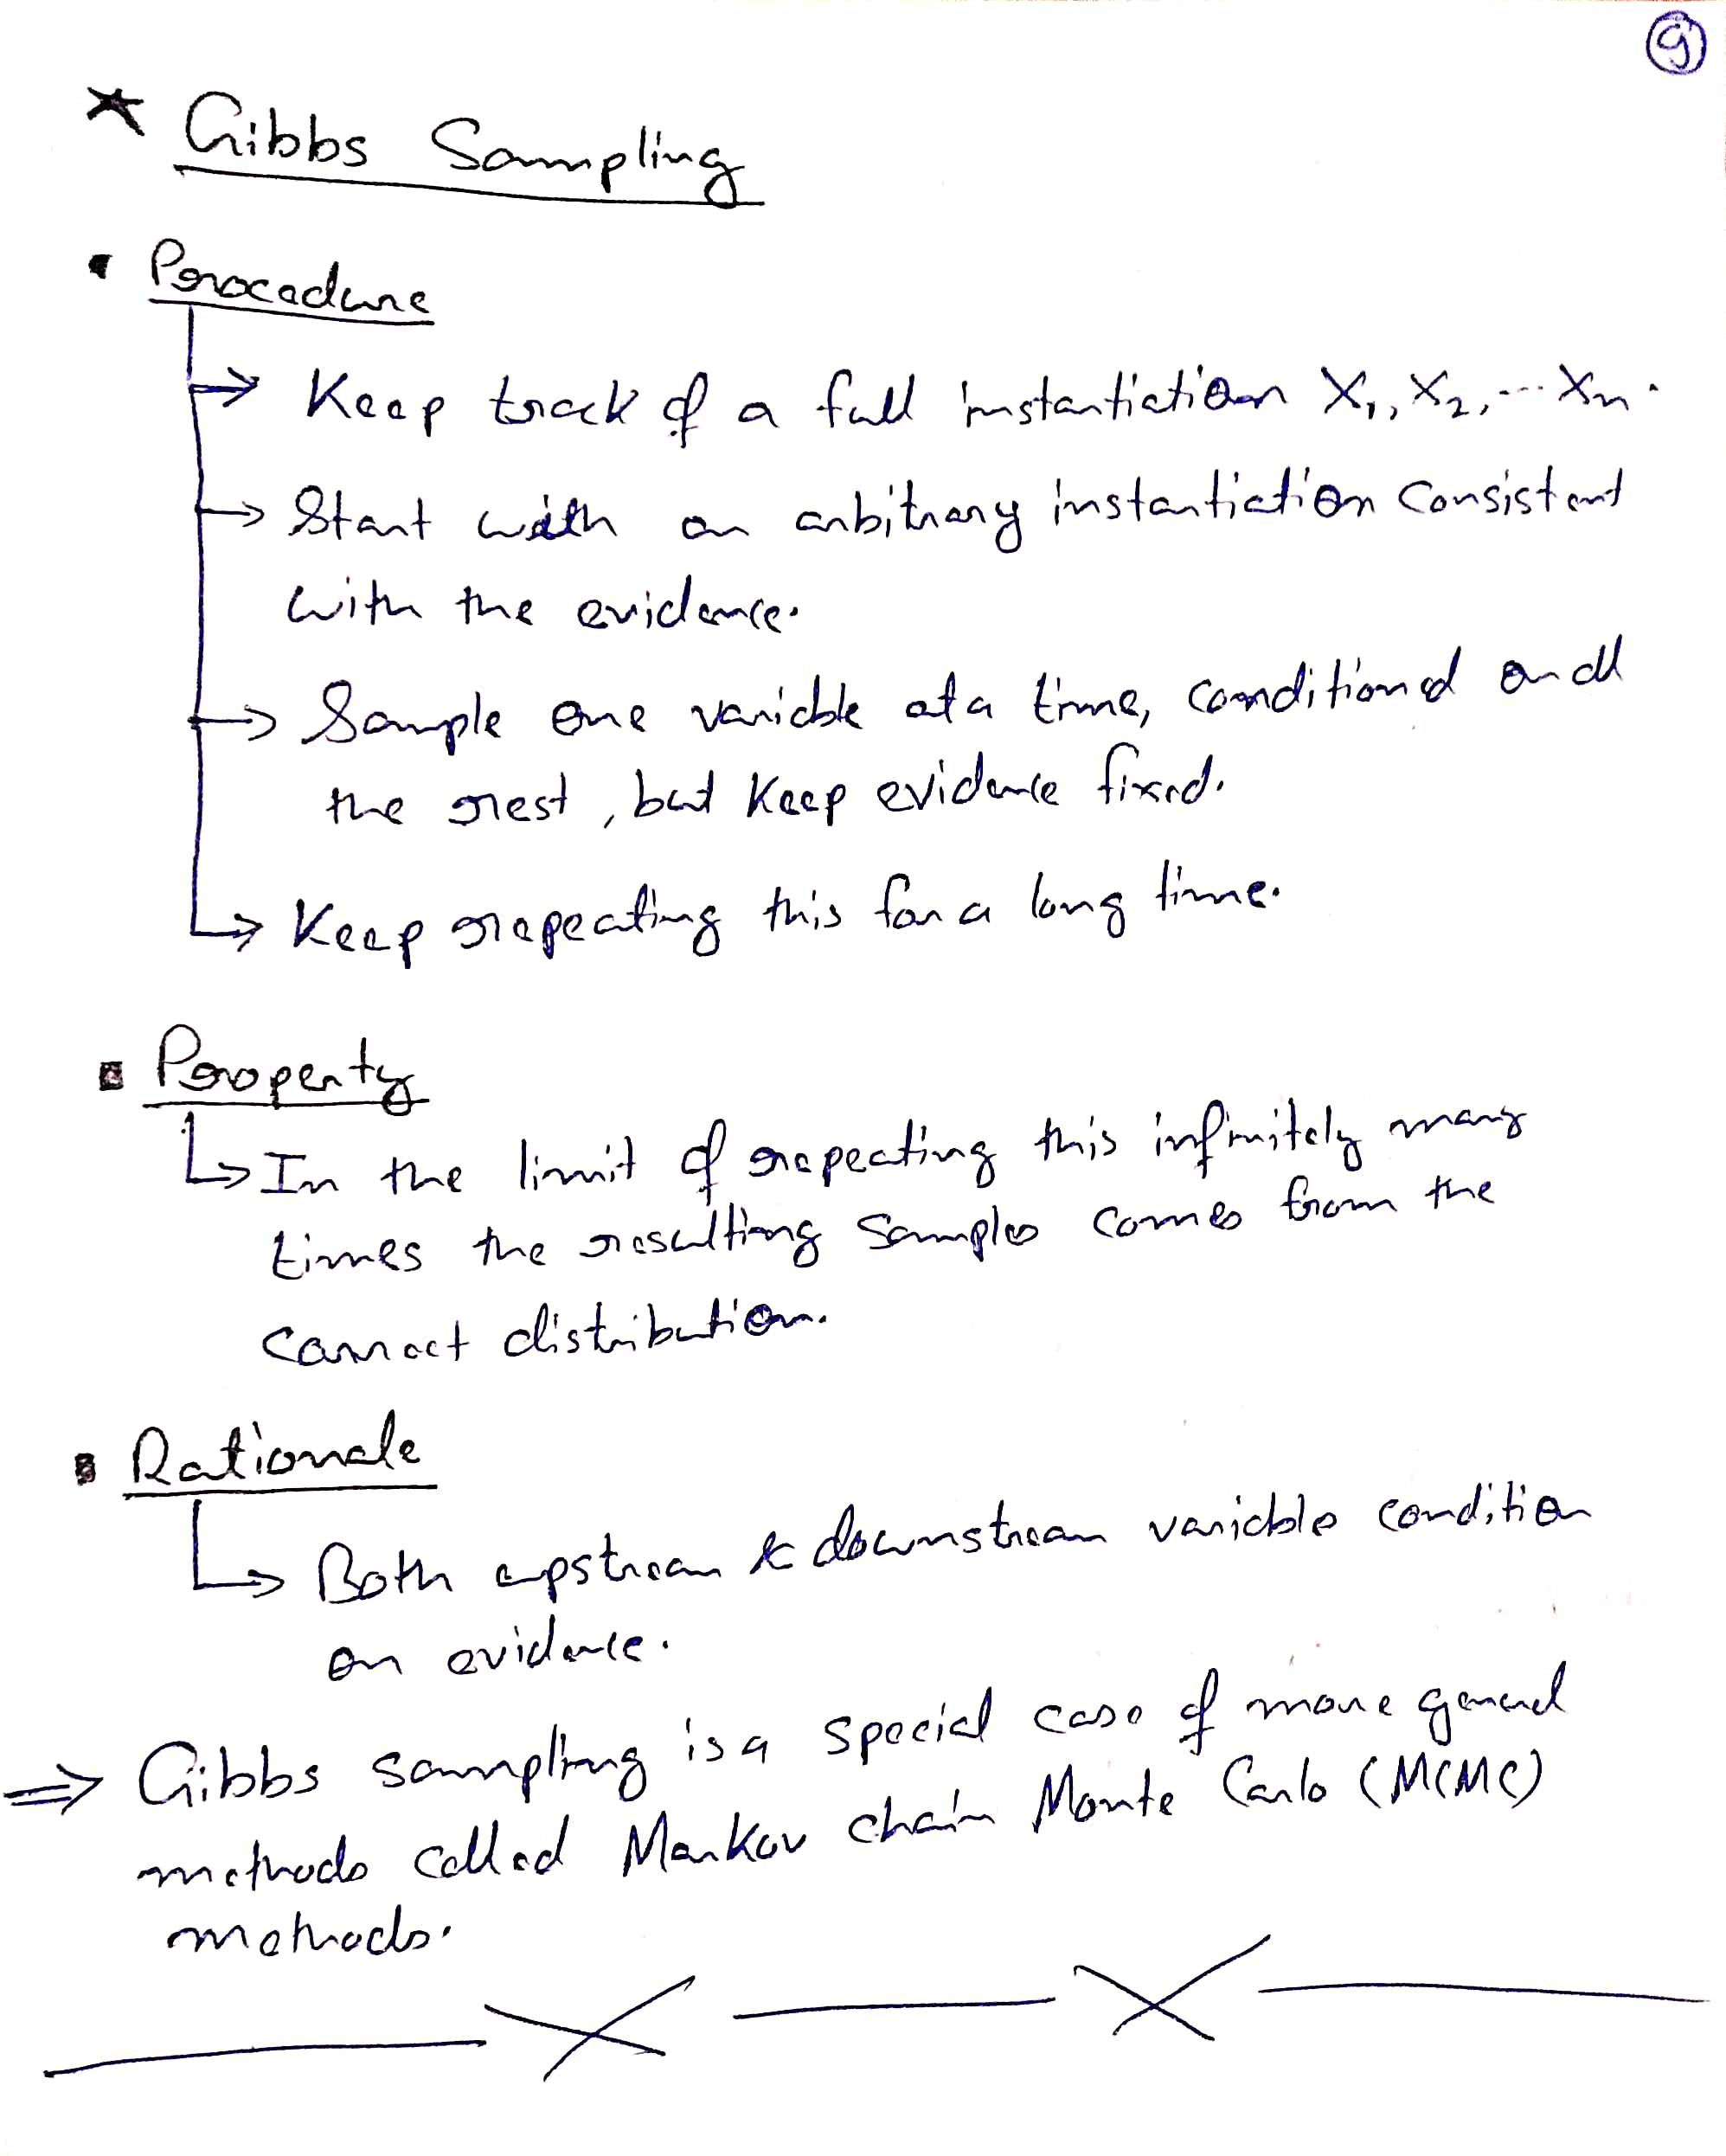 9
* Gibbs Sampling
▪ Procedure
→ Keep track of a full instantiation X1, X2, ... Xn.
→ Start with an arbitrary instantiation consistent
with the evidence.
→ Sample one variable at a time, conditioned on all
the rest, but keep evidence fixed.
→ Keep repeating this for a long time.
▪ Property
↳ In the limit of repeating this infinitely many
times the resulting samples comes from the
correct distribution.
▪ Rationale
↳ Both upstream & downstream variable condition
on evidence.
⇒ Gibbs sampling is a special case of more general
methods called Markov chain Monte Carlo (MCMC)
methods.